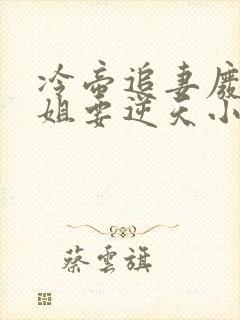 冷帝追妻廢
姐要逆天小
蔡雲旗